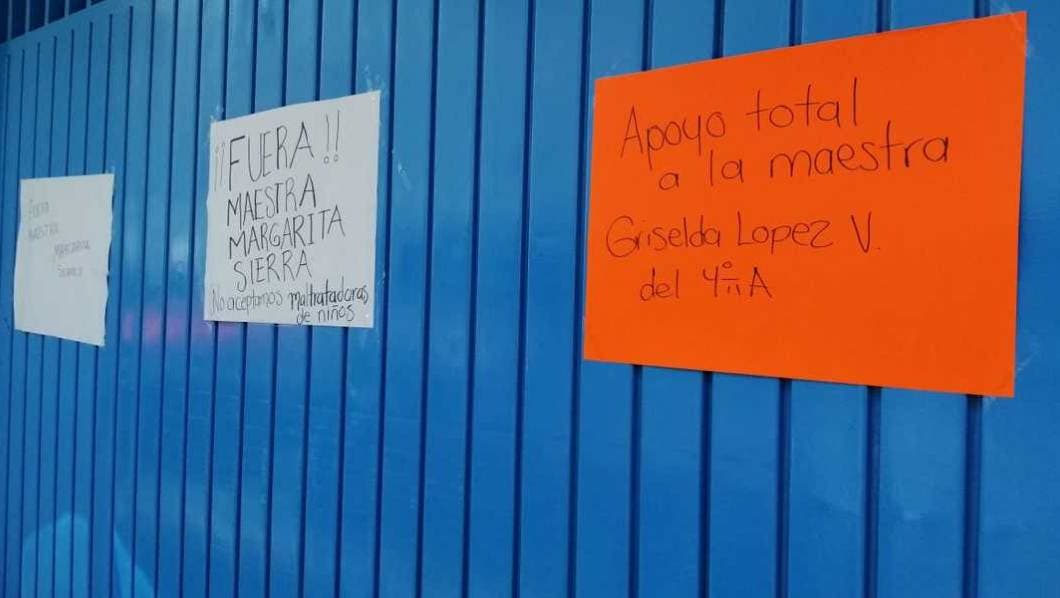 FUERA
MAESTRA
MARGARITA
SIERRA
¡¡FUERA!!
MAESTRA
MARGARITA
SIERRA
No aceptamos maltratadoras
de niños
Apoyo total
a la maestra
Griselda Lopez V.
del 4° A